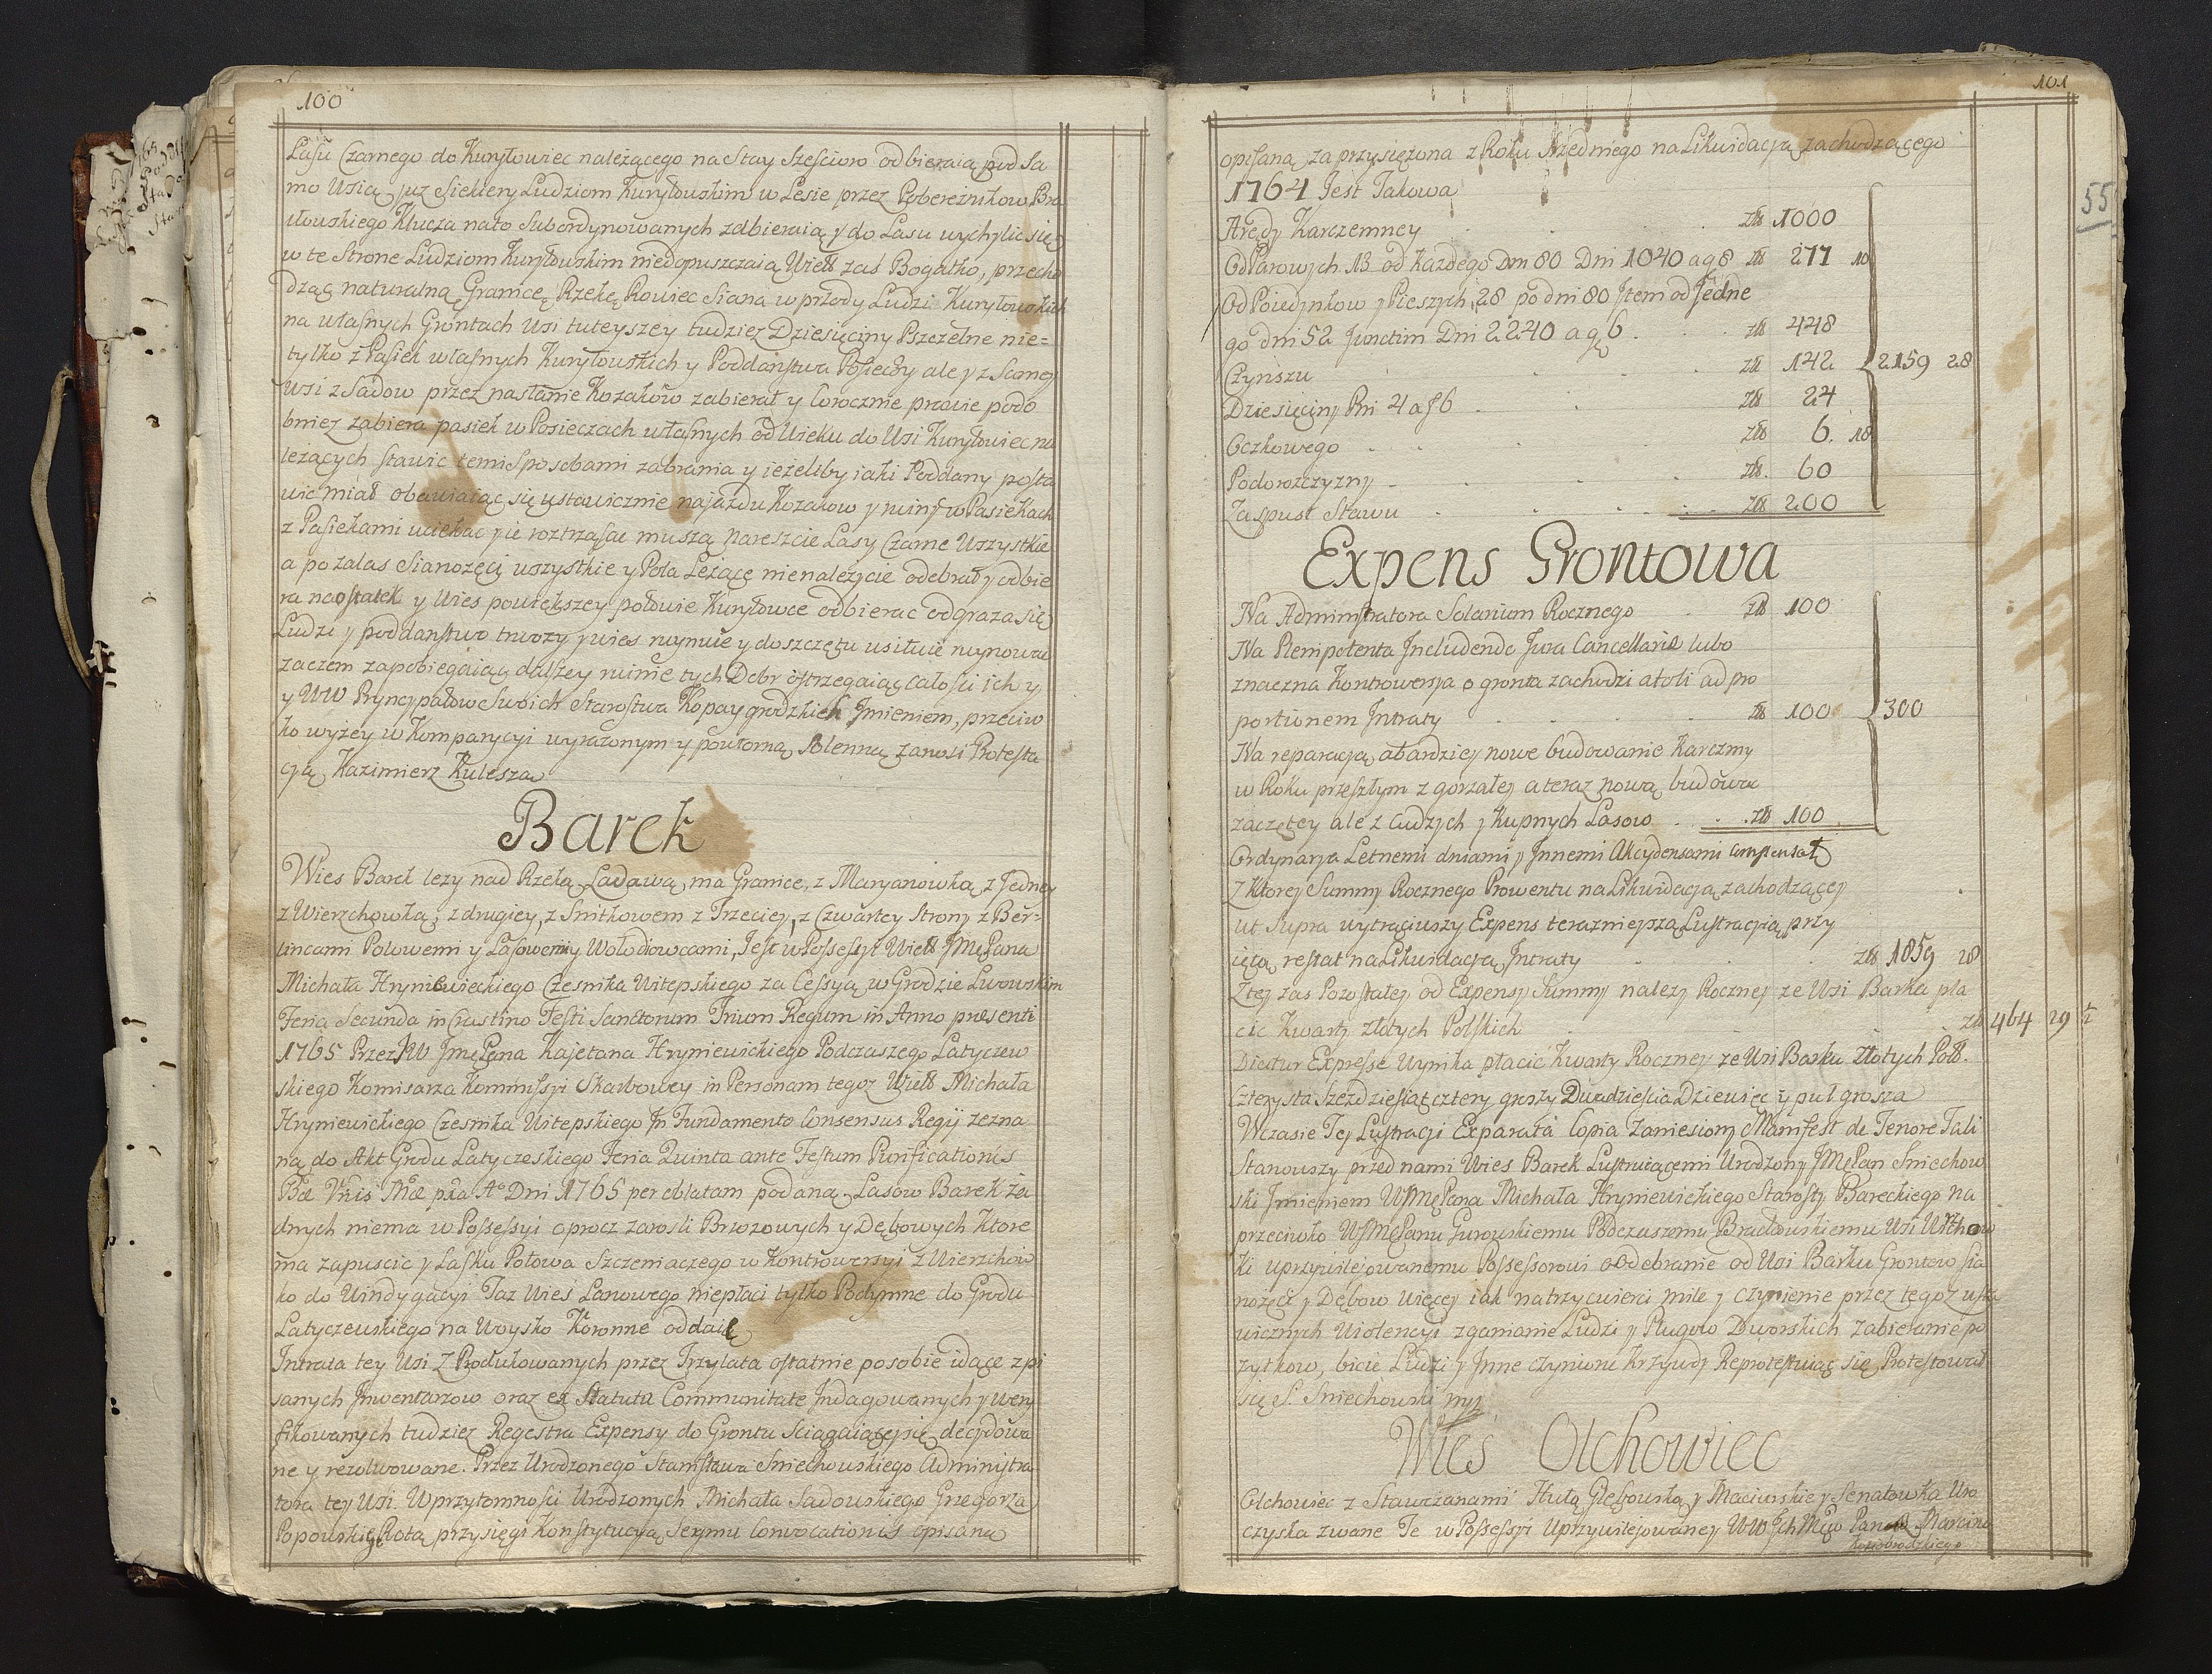 100
Lasu Czarnego do Kuryłowiec należącego na Stay Sześcioro odbieraią pod Sa
mo Wsią, juz Siekiery Ludziom Kuryłowskim w Lesie przez Pobereżnikow Bra
iłowskiego Klucza nato Subordynowanych zdbieraią y do Lasu wychylic się
w te Strone Ludziom Kuryłowskim niedopuszczaią Wiell zas Bogatko, przecho
dząc naturalną Granicę Rzekę Rowiec Siana w przody Ludzi Kuryłowskich
na własnych Grontach Wsi tuteyszey tudziez Dziesięciny Pszczelne nie=
tylko z Pasiek własnych Kuryłowskich y Poddanstwa Posieczy ale y z Samey
Wsi z Sadow przez nasłanie Kozakow zabierał y Corocznie prawie podo
bniez zabiera pasiek w Posieczach własnych od Wieku do Wsi Kuryłowiec na
leżących stawic temi Sposobami zabrania y ieżeliby iaki Poddany posta
wic miał obawiaiąc się ustawicznie najazdu Kozakow y ruiny w Pasiekach
z Pasiekami uciekac y ie roztrząsac muszą nareszcie Lasy Czarne Wszystkie
a po zalas Sianożęci wszystkie y Pola Leżącę nienależycie odebrał y odbie
ra na ostatek y Wies powiększey połowie Kuryłowce odbierac odgraza się
Ludzi y poddanstwo trwozy y wies ruynuie y doszczętu usiłuie ruynowac
zaczem zapobiegaiąc dalszey ruinie tych Dobr ostrzegaiąc całosci ich y
y WW Pryncypałow Swoich Starostwa Kopaygrodzkich Jmieniem, przeciw
ko wyżey w Komparycyi wyrażonym y powtorną Solenną zanosi Protesta
cyą, Kazimierz Kulesza
Barek
Wies Barek lezy nad Rzeką Ladawą, ma Granice, z Maryanowką z Jedney
z Wierzchowką; z drugiey, z Snitkowem z Trzeciey, z Czwartey Strony z Ber=
lincami Polowemi y Lasowemi y Wołodiowcami, Jest w Possessyi Wiell JMę Pana
Michała Hryniewieckiego Czesnika Witepskiego za Cessyą w Grodzie Lwowskim
Feria Secunda in Crastino Festi Sanctorum Trium Regum in Anno presenti
1765 Przez JW Jmę Pana Kajetana Hryniewickiego Podczaszego Latyczew
skiego Komisarza Kommissyi Skarbowey in Personam tegoz Wiell Michała
Hryniewickiego Czesnika Witepskiego In Fundamento Consensus Regij zezna
ną do Akt Grodu Latyczeskiego Feria Quinta ante Festum Purificationis
Bæ Vnis Mæ pxa A° Dni 1765 per oblatam podaną. Lasow Barek ża
dnych niema w Possessyi oprocz zarosli Brzozowych y Dębowych Ktore
ma zapuscic y Lasku Połowa Szczeniaczego w Kontrowersyi z Wierzchow
ko do Windygacyi Taz Wies Lanowego niepłaci tylko Podymne do Grodu
Latyczewskiego na Woysko Koronne oddaie
Intrata tey Wsi Z Produkowanych przez Trzylata ostatnie posobie idące spi
sanych Jnwentarzow oraz ex Statuta Communitate Indagowanych y wery
fikowanych tudziez Regestra Expensy do Grontu Sciągaiącejsię decydowa
ne y rezolwowane. Przez Urodzonego Stanisława Sniechowskiego Administra
tora tey Wsi. W przytomnosci Urodzonych Michała Sadowskiego Grzegorza
Popowskiego Rotą przysięgi Konstytucyą Seymu Convocationis opisana
101
55
opisaną zaprzysiężona z Roku Srzedniego na Likwidacyą zachodzącego
1764 Jest Takowa
Arędy Karczemney zł 1000
Od Parowych 13 od Każdego Dni 80 Dni 1040 a g 8 zł 277 10
Od Poiedynkow y Pieszych 28 po dni 80 Item od Jedne
go dni 52 Junctim Dni 2240 a g 6 zł 448
Czynszu zł 142 2159 28
Dziesięciny Pni 4 a f 6 zł 24
Oczkowego zł 6. 18
Podorozczyzny zł. 60
Za spust Stawu zł 200
Expens Grontowa
Na Administratora Solarium Rocznego zł 100
Na Plempotenta Includendo Jura Cancellariæ lubo
znaczna Kontrowersya o gronta zachodzi atoli ad pro
portionem Intraty zł 100 300
Na reparacyą abardziey nowe budowanie Karczmy
w Roku przeszłym z gorzałej a teraz nową budowa
zaczętey ale z Cudzych y Kupnych Lasow zł 100
Ordynarya Letnemi dniami y Innemi Akcydensami Compensat
Z Ktorey Summy Rocznego Prowentu na Likwidacyą zachodzącey
ut Supra wytrąciwszy Expens teraznieyszą Lustracyią przy
iętą, restat na Likwidacyą Intraty zł 1859 28
Z tey zas Pozostałey od Expensy Summy nalezy Roczney ze Wsi Barka pła
cic Kwarty złotych Polskich zł 464 29 ½
Dicitur Expresse Wynika płacic Kwarty Roczney ze Wsi Barku Złotych Poll.
Cztyrysta Szezdziesiąt cztery groszy Dwadziescia Dziewięc y puł grosza
W czasie Tej Lustracyi Exparata Copia Zaniesiony Manifest de Tenore Tali
Stanowszy przed nami Wies Barek Lustruiącemi Urodzony JMę Pan Sniechow
ski Jmieniem WJMę Pana Michała Hryniewickiego Starosty Bareckiego na
przeciwko WJMę Panu Gurowskiemu Podczaszemu Bracławskiemu Wsi Wirzchow
ki uprzywilejowanemu Possessorowi o Odebranie od Wsi Barku Grontow sia
nożęci y Dębow więcey iak na trzy cwierci mile y czynienie przez tegoz usta
wicznych Wiolencyi zganianie Ludzi y Pługow Dworskich zabieranie po
żytkow, bicie Ludzi y Inne czynione Krzywdy Reprotestuiąc się, Protestował
się S. Sniechowski mpp
Wies Olchowiec
Olchowiec z Stawczanami Hutą Glebowską y Maciorskie y Senatowka Uro
czyska zwane Te w Possessyi Uprzywilejowaney WW Ich Męw Panow Marcina
Kozobrodzkiego